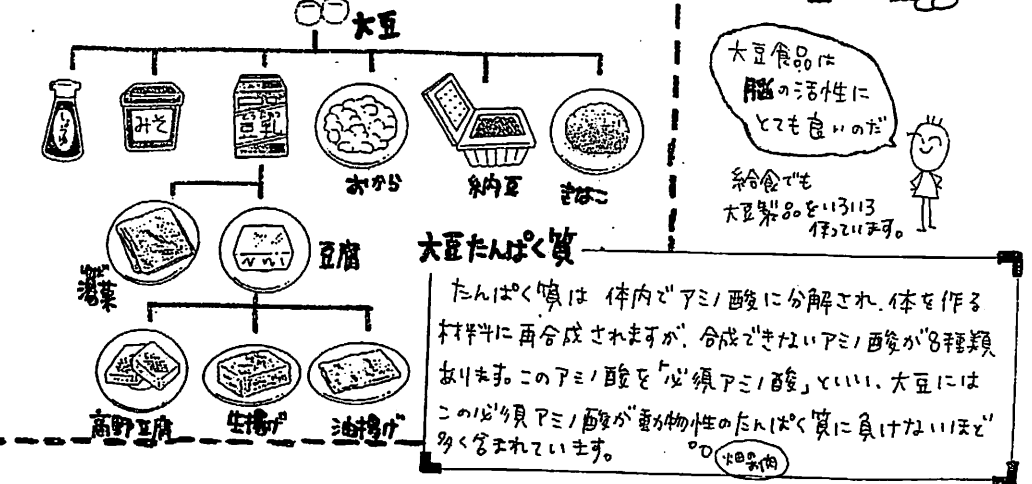 大豆
しょうゆ
みそ
豆乳
おから
納豆
きなこ
湯葉
豆腐
高野豆腐
生揚げ
油揚げ
大豆食品は
脳の活性に
とても良いのだ
給食でも
大豆製品をいろいろ
使っています。
大豆たんぱく質
たんぱく質は 体内でアミノ酸に分解され、体を作る
材料に再合成されますが、合成できないアミノ酸が8種類
あります。このアミノ酸を「必須アミノ酸」といい、大豆には
この必須アミノ酸が動物性のたんぱく質に負けないほど
多く含まれています。
畑のお肉